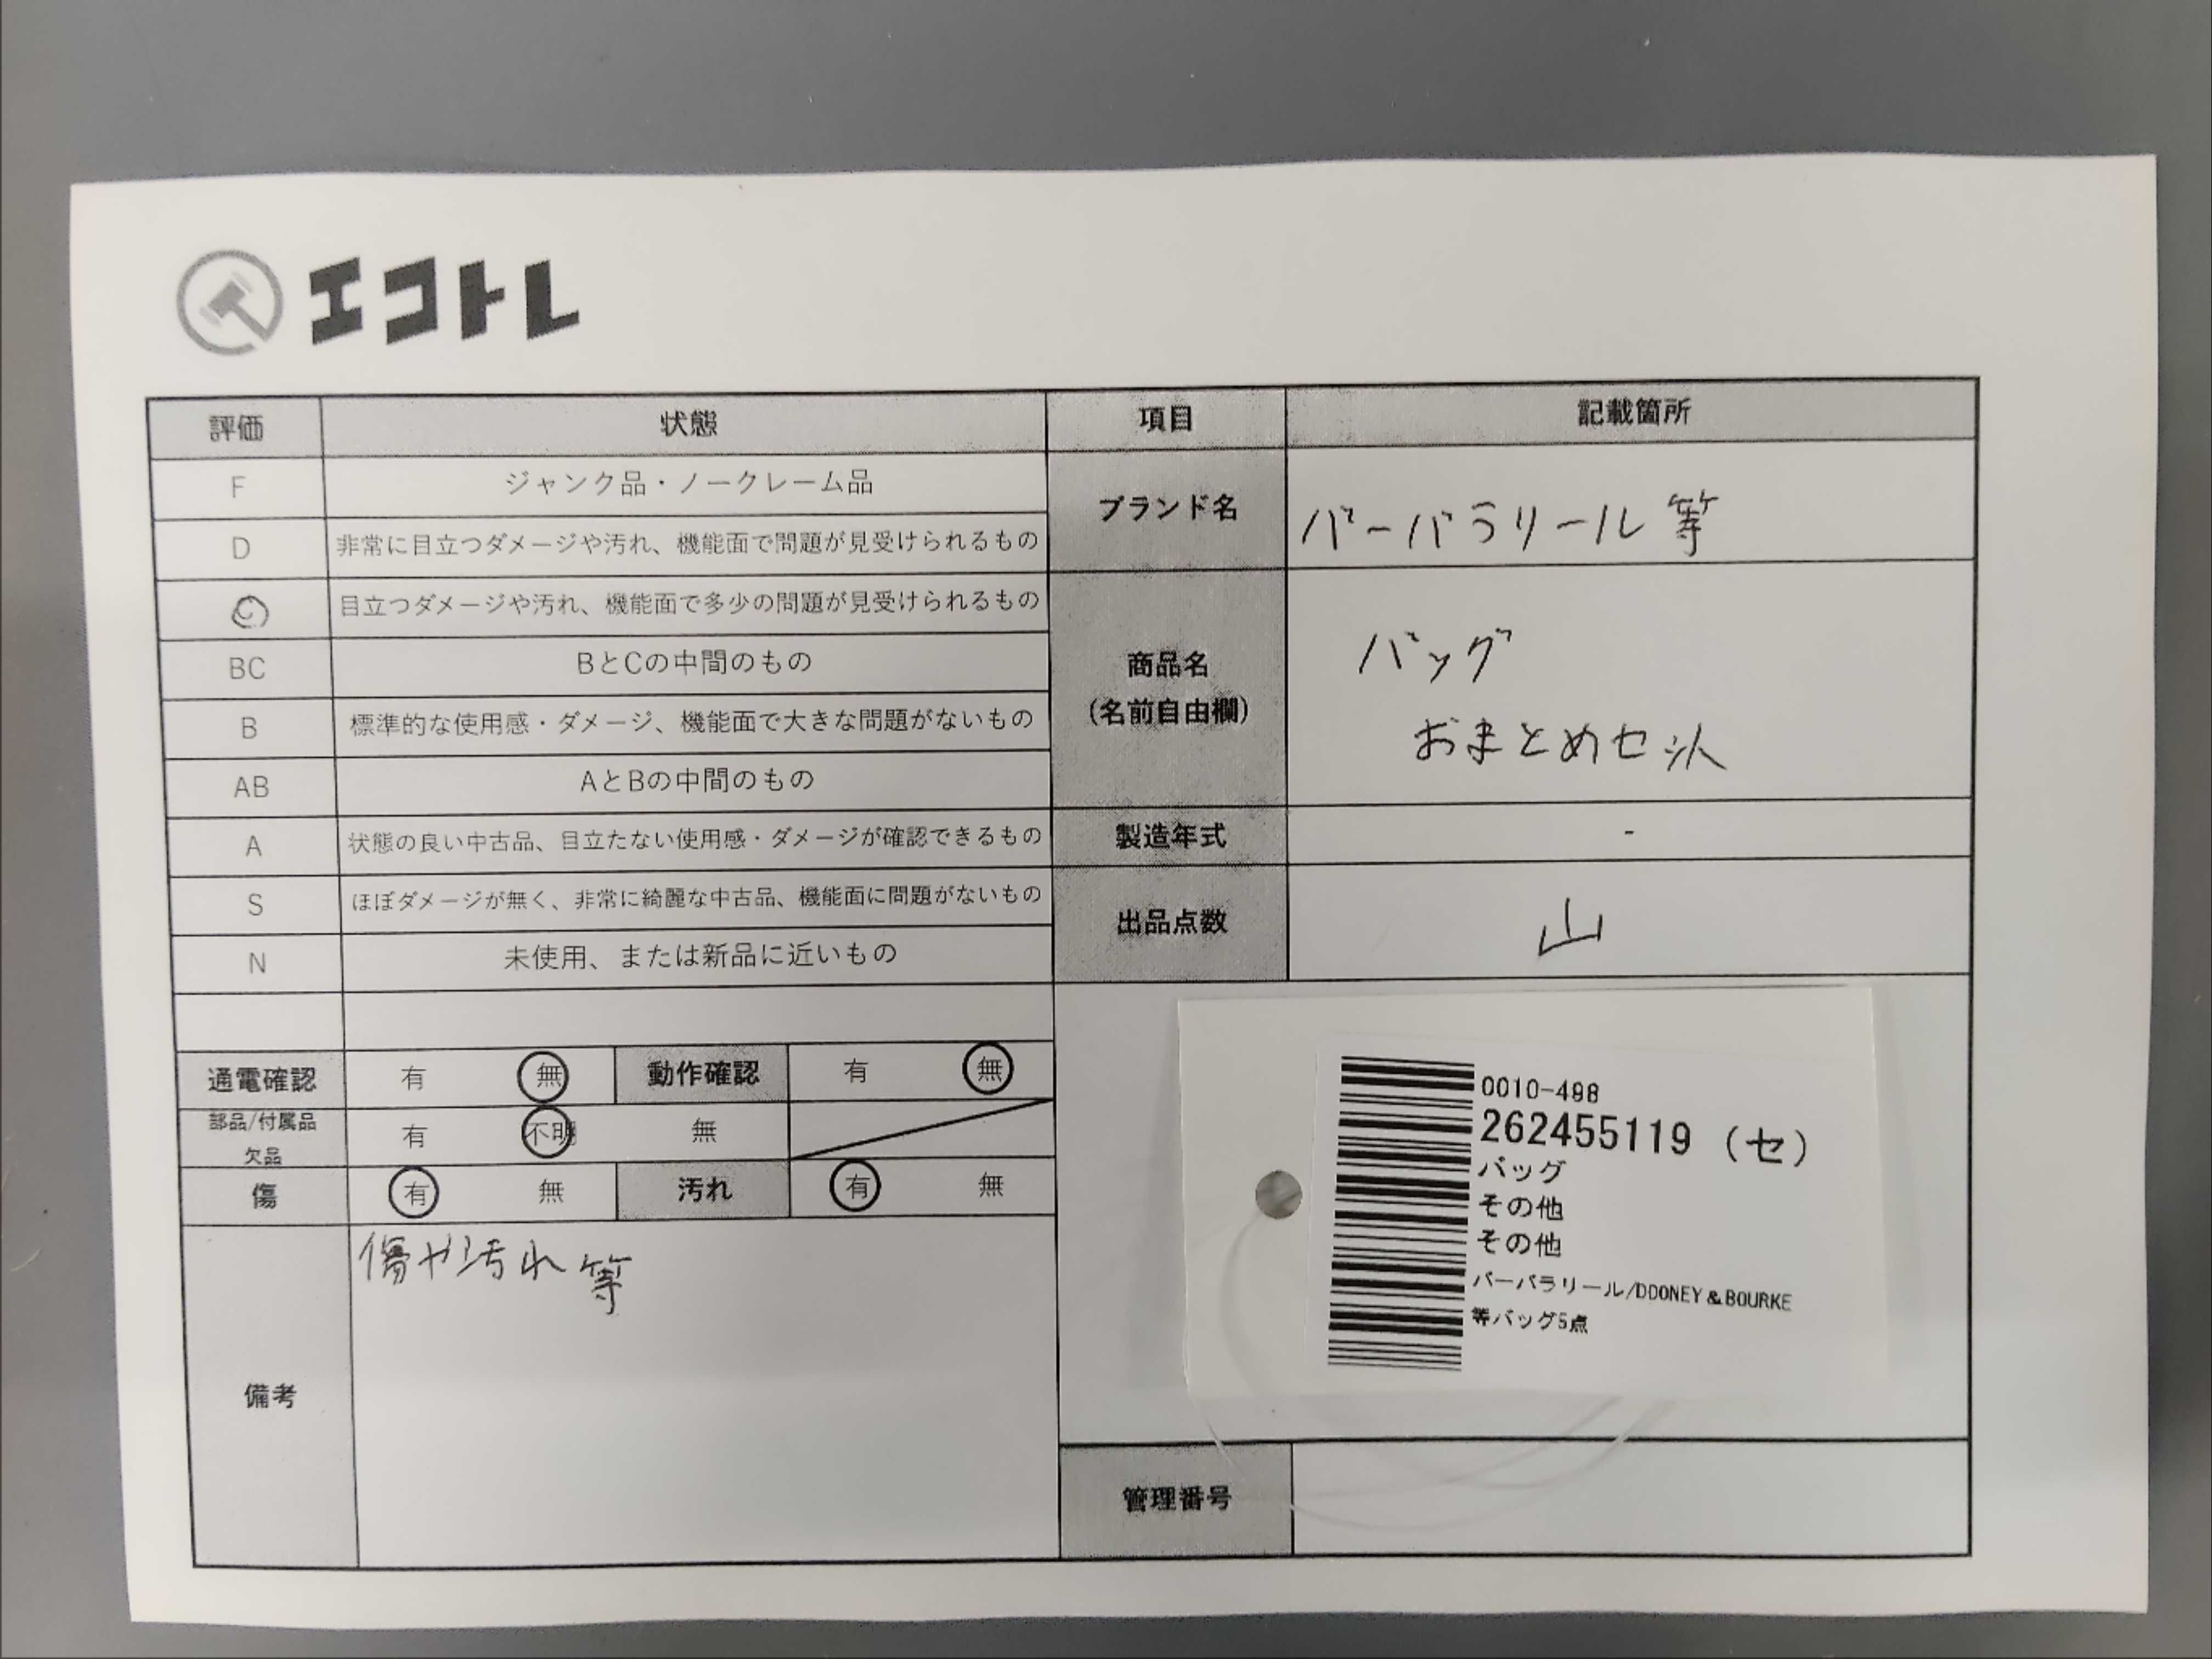 エコトレ
評価 状態 項目 記載箇所
F ジャンク品・ノークレーム品
D 非常に目立つダメージや汚れ、機能面で問題が見受けられるもの
C 目立つダメージや汚れ、機能面で多少の問題が見受けられるもの
BC BとCの中間のもの
B 標準的な使用感・ダメージ、機能面で大きな問題がないもの
AB AとBの中間のもの
A 状態の良い中古品、目立たない使用感・ダメージが確認できるもの
S ほぼダメージが無く、非常に綺麗な中古品、機能面に問題がないもの
N 未使用、または新品に近いもの
ブランド名 バーバラリール等
商品名
(名前自由欄)
バッグ
おまとめセット
製造年式 -
出品点数 山
通電確認 有 無 動作確認 有 無
部品/付属品
欠品
有 不明 無
傷 有 無 汚れ 有 無
備考 傷や汚れ等
0010-498
262455119 (セ)
バッグ
その他
その他
バーバラリール/DOONEY&BOURKE
等バッグ5点
管理番号